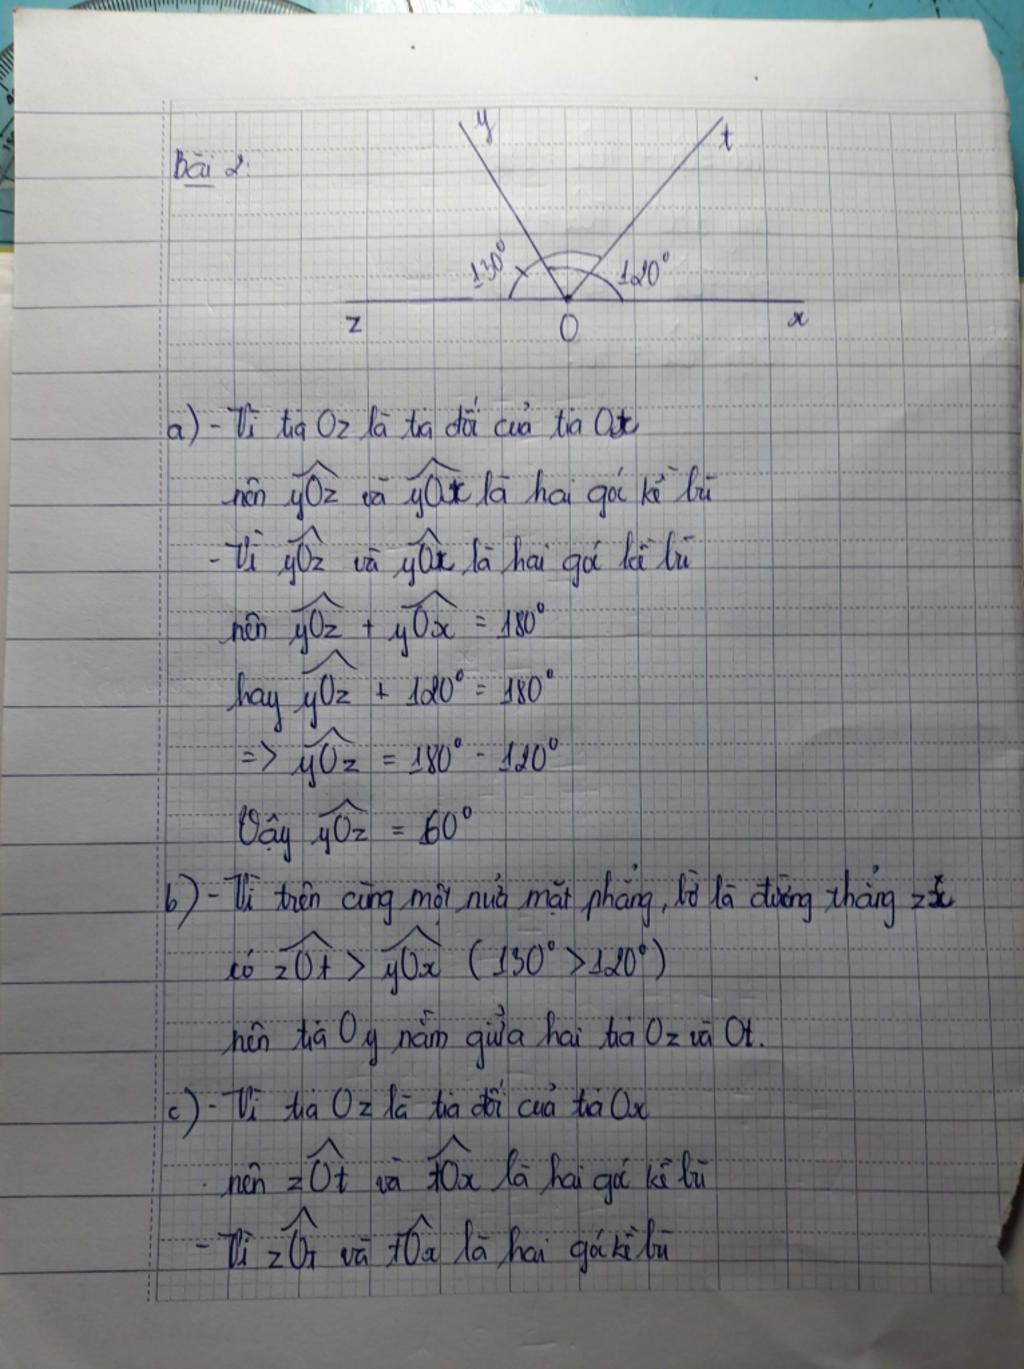 Bài 2:
y
t
130°
120°
z
O
x
a) - Vì tia Oz là tia đối của tia Ox
nên yOz và yOx là hai góc kề bù
- Vì yOz và yOx là hai góc kề bù
nên yOz + yOx = 180°
hay yOz + 120° = 180°
=> yOz = 180° - 120°
Vậy yOz = 60°
b) - Vì trên cùng một nửa mặt phẳng, bờ là đường thẳng zx
có zOt > yOx (130° > 120°)
nên tia Oy nằm giữa hai tia Oz và Ot.
c) - Vì tia Oz là tia đối của tia Ox
nên zOt và tOx là hai góc kề bù
- Vì zOt và tOx là hai góc kề bù